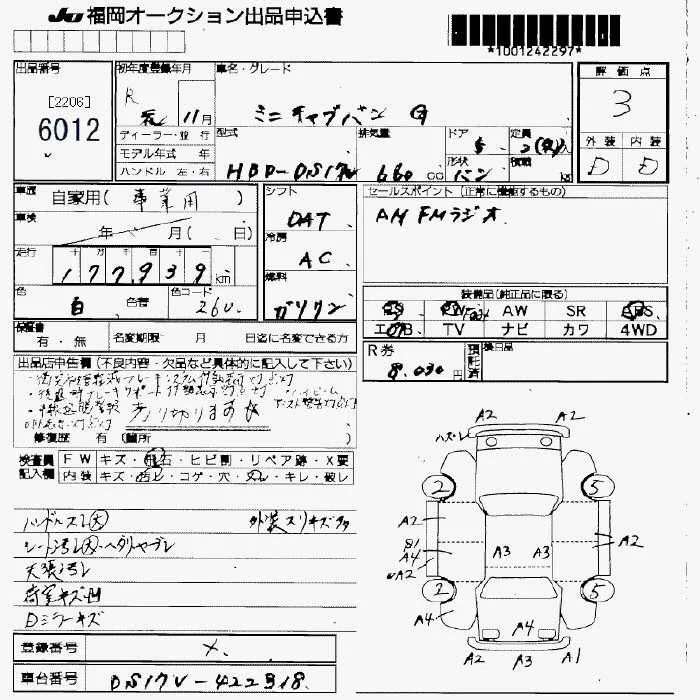 JU 福岡オークション出品申込書
*1001242297*
出品番号
[2206]
6012
初年度登録年月
R 元 11月
車名・グレード
ミニキャブバン G
評価点
3
外装 内装
D D
ディーラー・並行
モデル年式 年
ハンドル 左・右
型式
HBD-DS17V
排気量
660 cc
ドア
5
形状
バン
定員
積載
kg
車歴
自家用(事業用)
車検
年 月( 日)
走行
177,939 km
色
白 色替
色コード
26U
シフト
DAT
冷房
AC
燃料
ガソリン
セールスポイント(正常に機能するもの)
AM FMラジオ
装備品(純正品に限る)
PS PW AW SR ABS
エアB TV ナビ カワ 4WD
保証書
有・無
名変期限 月 日迄に名変できる方
R券
8,030円
預託済
後日品
出品店申告欄(不良内容・欠品など具体的に記入して下さい)
売り切ります
修復歴 有(箇所
検査員記入欄
FW キズ・飛石・ヒビ割・リペア跡・X要
内装 キズ・汚レ・コゲ・穴・スレ・キレ・破レ
ハンドルスレ大 外装スリキズ多
シート汚レ大・ヘタリヤブレ
天張汚レ
荷室キズ凹
Dミラーキズ
登録番号
×
車台番号
DS17V-422318
A2 A2
ハズレ
2 5
A2
B1
A4
A2
A3 A3
A2
2 5
A4
A4
A2 A3 A1